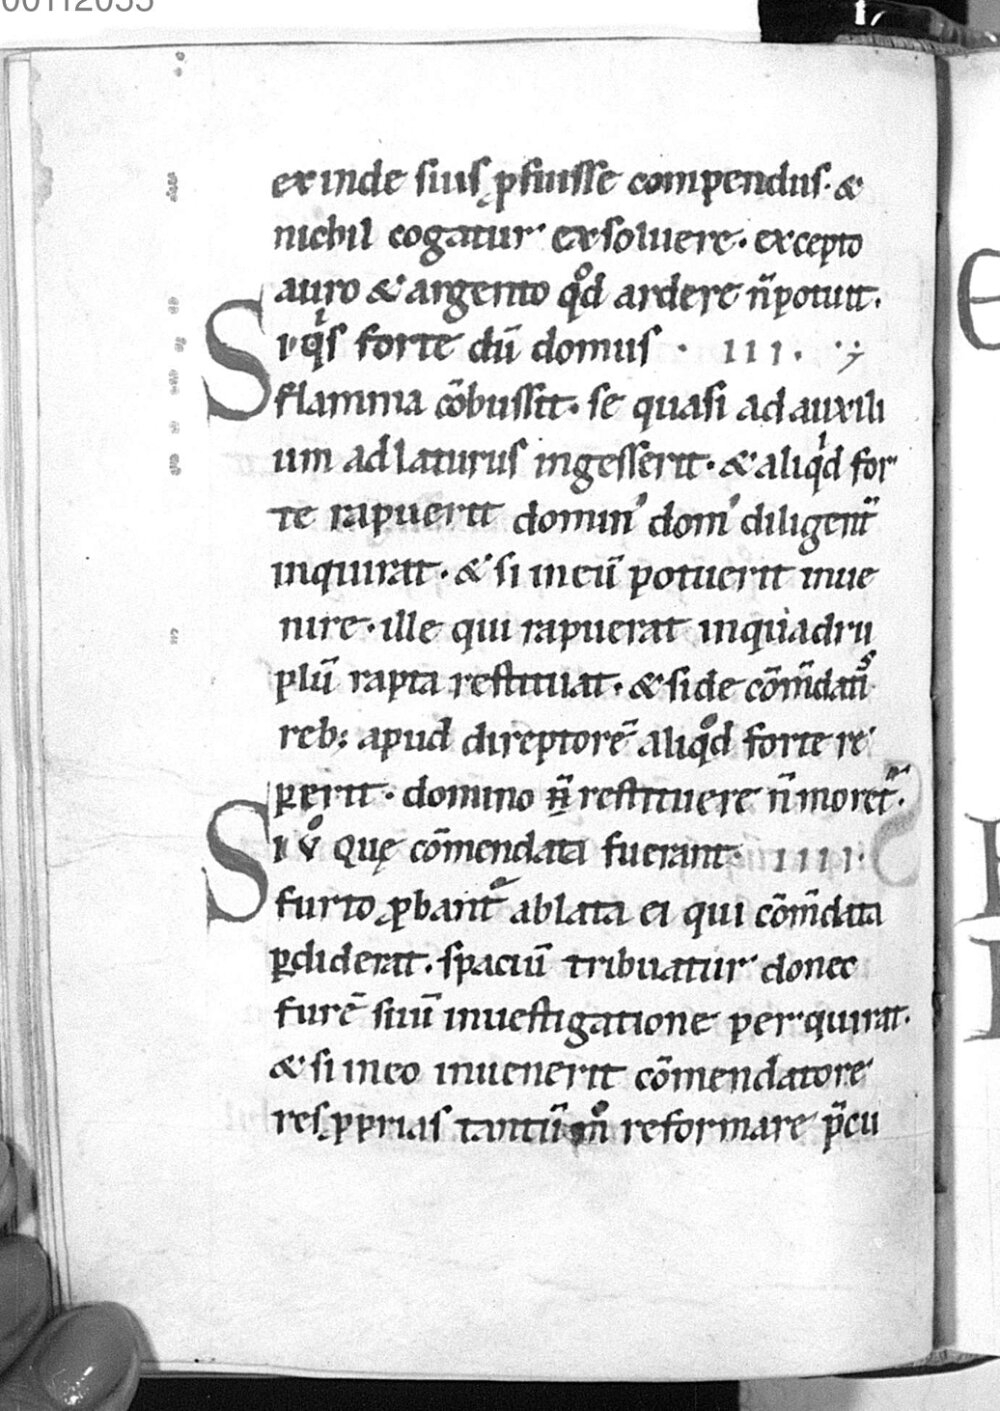 00112055
exinde suis ꝓfuisse compendiis· &
nichil cogatur exsoluere· excepto
auro & argento qͦd ardere n̄ potuit.
Si qͥs forte dū domus · III.
flamma cōbussit· se quasi ad auxili
um adlaturus ingesserit· & aliqͥd for
te rapuerit domin' dom' diligent̄
inquirat· & si in eū potuerit inue
nire· ille qui rapuerat inquadru
plū rapta restituat· & si de cōm̄datis
reb; apud direptorē aliqͦd forte re
ꝑerit· domino n̄ restituere n̄ moret᷑.
Si vͦ quę cōmendata fuerant· IIII.
furto ꝓbant᷑ ablata ei qui cōm̄data
ꝑdiderat· spaciū tribuatur donec
furē suū inuestigatione perquirat·
& si in eo inuenerit cōmendatore
res ꝓprias tantūm̊ reformare p̄cu